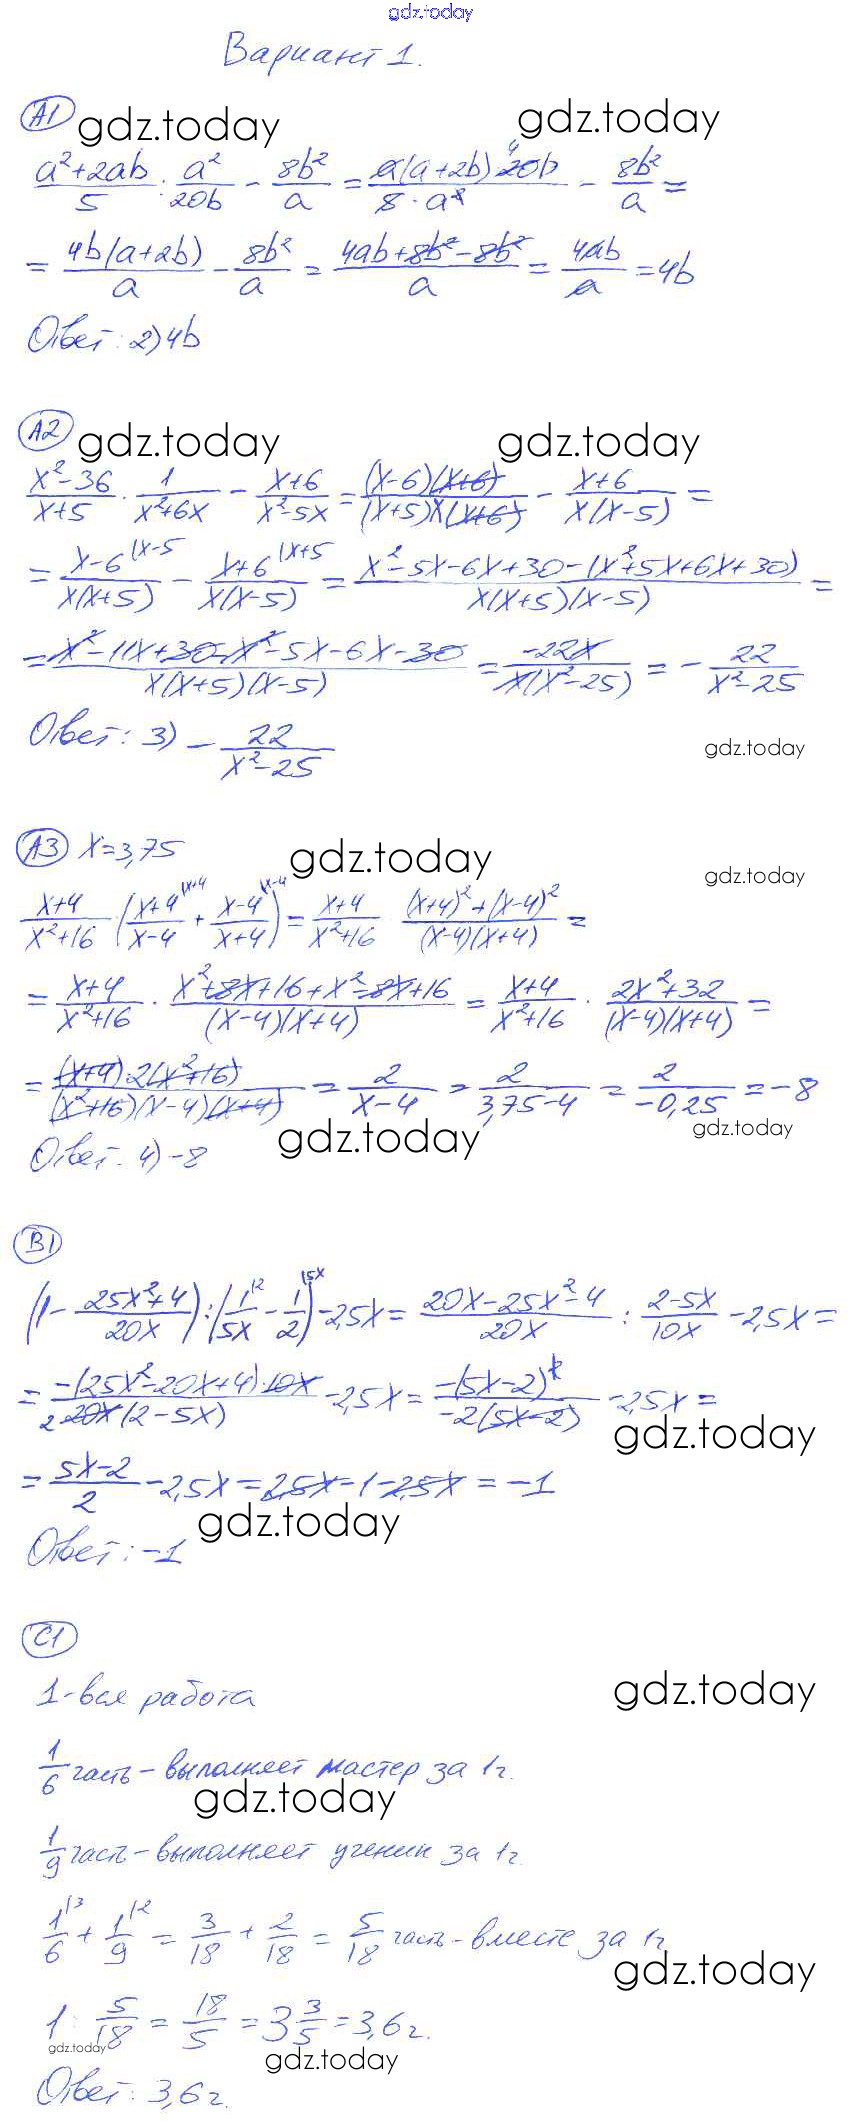 gdz.today
Вариант 1.
А1 gdz.today gdz.today
(a²+2ab)/5 : a²/20b - 8b²/a = a(a+2b)·20b 4/(8·a²) - 8b²/a =
= 4b(a+2b)/a - 8b²/a = (4ab+8b²-8b²)/a = 4ab/a = 4b
Ответ: 2) 4b
А2 gdz.today gdz.today
(x²-36)/(x+5) · 1/(x²+6x) - (x+6)/(x²-5x) = (x-6)(x+6)/((x+5)x(x+6)) - (x+6)/(x(x-5)) =
= (x-6)/(x(x+5)) |x-5 - (x+6)/(x(x-5)) |x+5 = (x²-5x-6x+30-(x²+5x+6x+30))/(x(x+5)(x-5)) =
= (x²-11x+30-x²-5x-6x-30)/(x(x+5)(x-5)) = -22x/(x(x²-25)) = - 22/(x²-25)
Ответ: 3) - 22/(x²-25)
gdz.today
А3 x=3,75 gdz.today
gdz.today
(x+4)/(x²+16) · ((x+4)/(x-4) |x+4 + (x-4)/(x+4) |x-4) = (x+4)/(x²+16) ((x+4)²+(x-4)²)/((x-4)(x+4)) =
= (x+4)/(x²+16) · (x²+8x+16+x²-8x+16)/((x-4)(x+4)) = (x+4)/(x²+16) · (2x²+32)/((x-4)(x+4)) =
= (x+4)·2(x²+16)/((x²+16)(x-4)(x+4)) = 2/(x-4) = 2/(3,75-4) = 2/(-0,25) = -8
gdz.today
gdz.today
Ответ. 4) -8
В1
(1 - (25x²+4)/20x) : (1/5x |2 - 1/2 |5x) - 2,5x = (20x-25x²-4)/20x : (2-5x)/10x - 2,5x =
= -(25x²-20x+4)·10x/(2 20x(2-5x)) - 2,5x = -(5x-2)²/(-2(5x-2)) - 2,5x =
gdz.today
= (5x-2)/2 - 2,5x = 2,5x-1-2,5x = -1
gdz.today
Ответ: -1
С1
1-вся работа
gdz.today
1/6 часть - выполняет мастер за 1ч.
gdz.today
1/9 часть - выполняет ученик за 1ч.
1/6 |3 + 1/9 |2 = 3/18 + 2/18 = 5/18 часть - вместе за 1ч
gdz.today
1 : 5/18 = 18/5 = 3 3/5 = 3,6 ч.
gdz.today
gdz.today
Ответ: 3,6 ч.